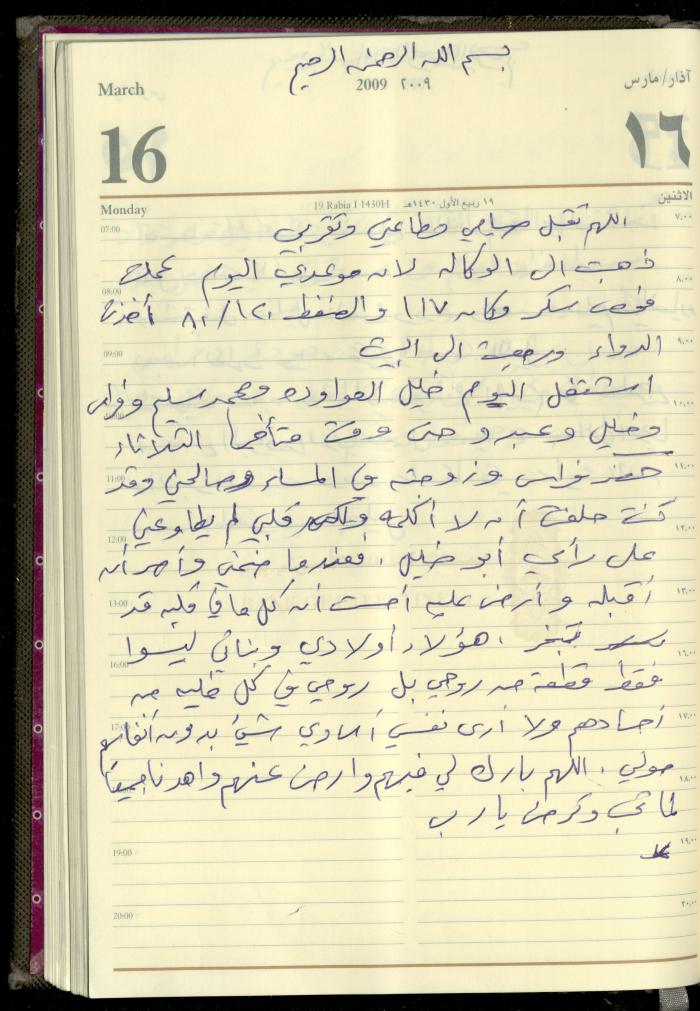 بسم الله الرحمن الرحيم
March 2009 ٢٠٠٩ آذار/مارس
16 ١٦
Monday 19 Rabia I 1430H ١٩ ربيع الأول ١٤٣٠هـ الاثنين
07:00 اللهم تقبل صيامي وطاعتي وتقربي ٧:٠٠
ذهبت الى الوكاله لانه موعدي اليوم عملت ٨:٠٠
08:00 فحص سكر وكان ١١٧ والضغط ٨٠/١٢٠ أخذت
09:00 الدواء ورجعت الى البيت ٩:٠٠
اشتغل اليوم خليل العواوده ومحمد سليم وفراس ١٠:٠٠
وخليل وعبد وحتى وقت متأخر الثلاثاء
11:00 حضر فراس وزوجته في المساء وصالحني وقد ١١:٠٠
12:00 كنت حلفت أن لا أكلمه ولكن قلبي لم يطاوعني ١٢:٠٠
على رأي أبو خليل. فعندما ضمني وأصر أن
13:00 أقبله وأرضى عليه أحسست أن كل ما في قلبه قد ١٣:٠٠
16:00 تبخر. هؤلاء أولادي وبناتي ليسوا ١٦:٠٠
فقط قطعة من روحي بل روحي في كل خليه من
17:00 أجسادهم ولا أرى نفسي أساوي شيئ بدون أنفاسهم ١٧:٠٠
حولي. اللهم بارك لي فيهم وارض عنهم واهدنا جميعا ١٨:٠٠
لما تحب وترضى يا رب
19:00 ١٩:٠٠
20:00 ٢٠:٠٠